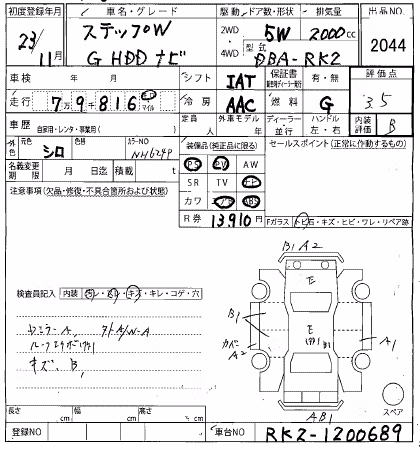 初度登録年月 車名・グレード 駆動 ドア数・形状 排気量 出品NO.
23/11月 ステップW 2WD 4WD 5W 2000cc 2044
G HDDナビ 型式 DBA-RK2
車検 年 月 シフト IAT 保証書 有・無 評価点
走行 7万9千816 キロ マイル 冷房 AAC 燃料 G 3.5
車歴 自家用・レンタ・事業用( ) 定員 人 外車モデル 年 ディーラー・並行 ハンドル 左・右 内装評価 B
外色 元色 シロ カラーNO NH624P 装備品(純正品に限る) セールスポイント(正常に作動するもの)
PS PW
名義変更期限 月 日迄 積載 t SR TV ナビ
注意事項(欠品・修復・不具合箇所および状態) カワ エアB ABS
R券 13,910円 Fガラス トビ石・キズ・ヒビ・ワレ・リペア跡
B1 A2
検査員記入 内装 汚レ・スレ・キズ・キレ・コゲ・穴
E
B1
E
カバー A2
A1
キズ、B1
AB1
スペア
長さ cm 幅 cm 高さ cm
登録NO 車台NO RK2-1200689